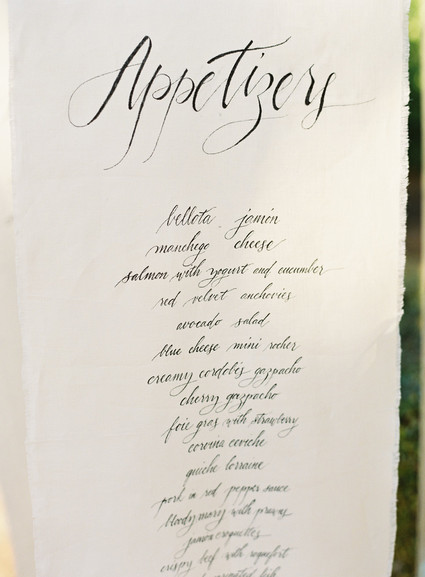 Appetizers
bellota jamón
manchego cheese
salmon with yogurt and cucumber
red velvet anchovies
avocado salad
blue cheese mini rocher
creamy cordobés gazpacho
cherry gazpacho
foie gras with strawberry
corvina ceviche
quiche lorraine
pork in red pepper sauce
bloody mary with prawns
jamon croquettes
crispy beef with roquefort
fish